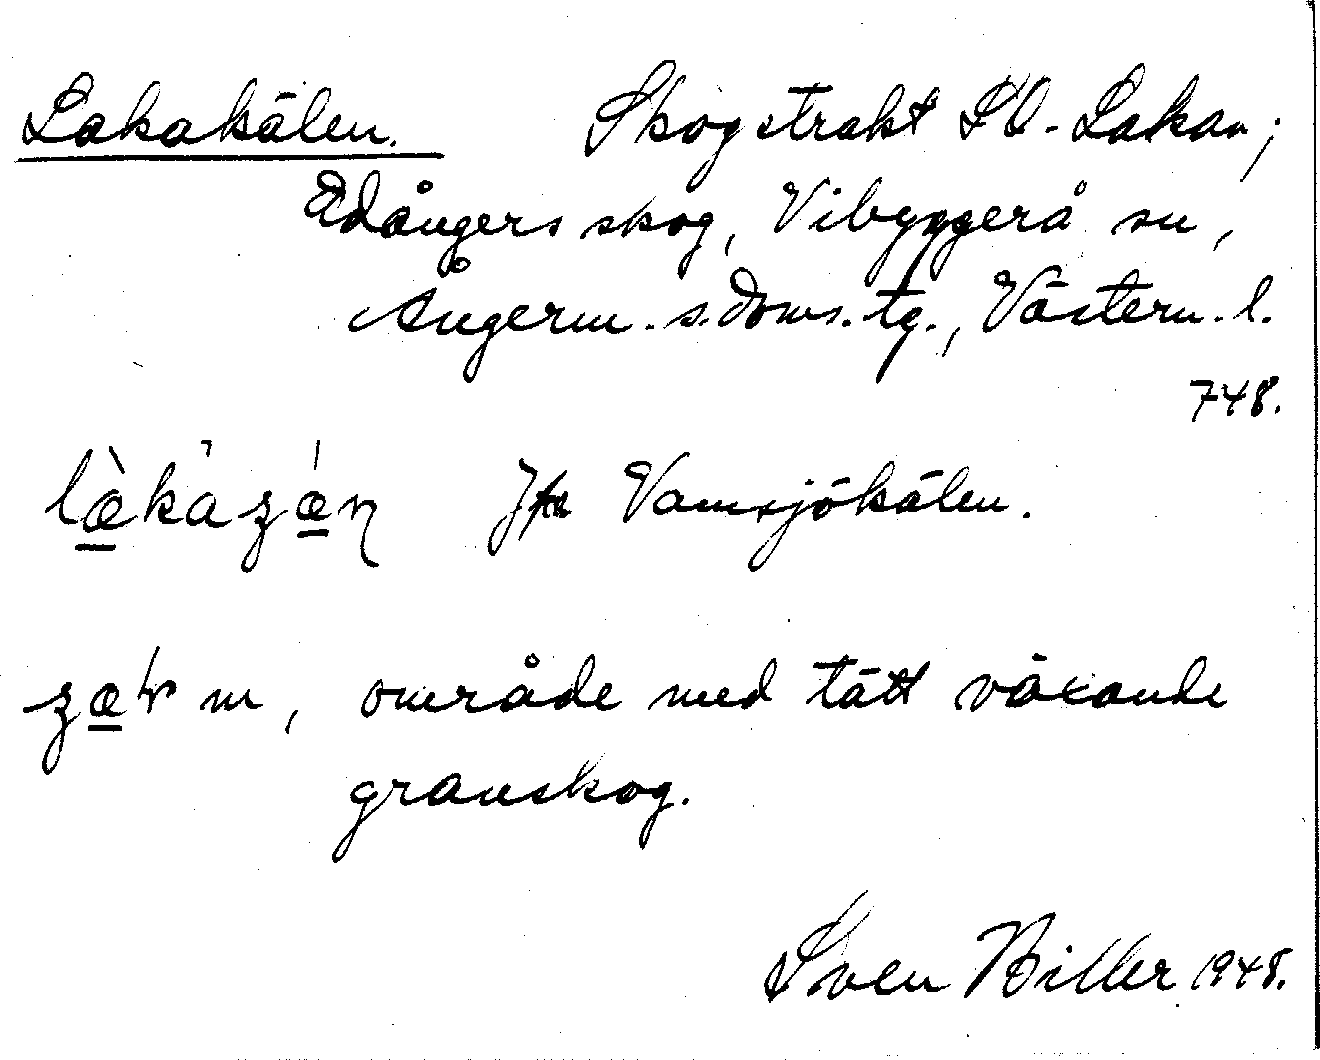 Lakakälen. Skogstrakt SO-Lakan;
Edångers skog, Vibyggerå sn,
Ångerm. s. doms. tg., Västern. l.
748.
Jfr Vamsjökälen.
m, område med tätt växande
granskog.
Sven Biller 1948.